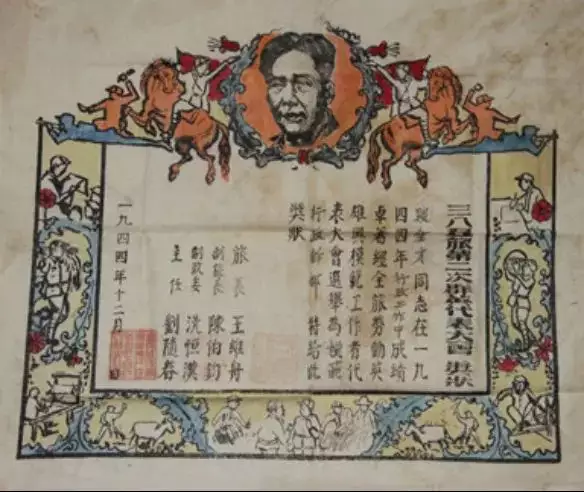 三八五旅第二次群英代表大會 獎狀
全才同志在一九
四四年行政工作中成績
卓著經全旅勞動英
雄與模範工作者代
表大會選舉為模範
行政幹部特給此
獎狀
旅長 王維舟
副旅長 陳伯鈞
副政委 洗恒漢
主任 劉隨春
一九四四年十二月 日